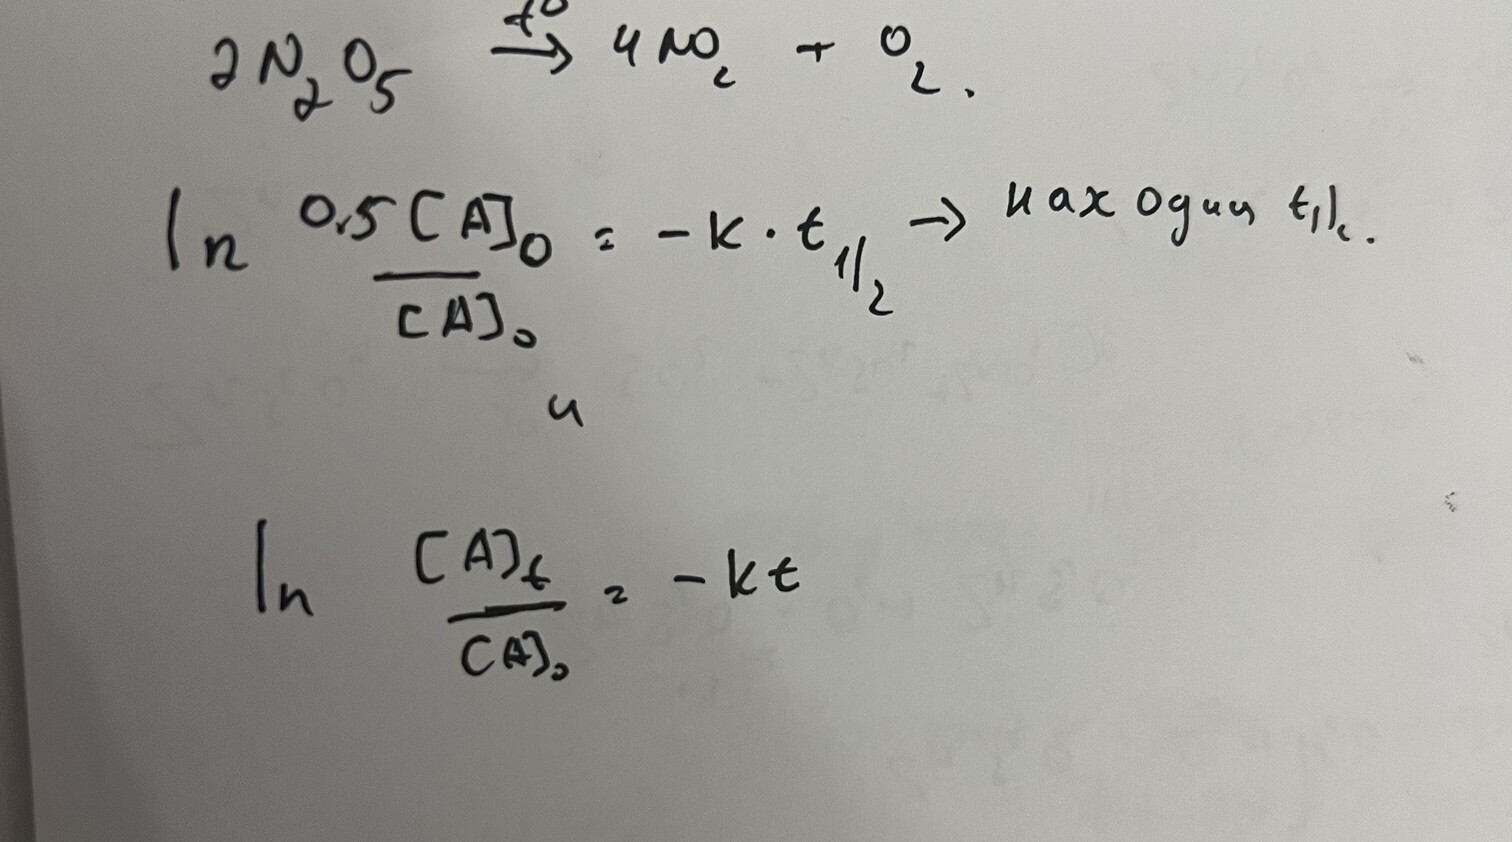 2N₂O₅ →t° 4NO₂ + O₂.
ln 0.5[A]₀/[A]₀ = -k · t₁/₂ → находим t₁/₂.
и
ln [A]t/[A]₀ = -kt